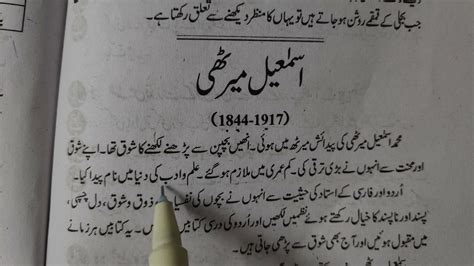 جب بجلی کے قمقمے روشن ہو جاتے ہیں تو یہاں کا منظر دیکھنے سے تعلق رکھتا ہے۔
اسمٰعیل میرٹھی
(1844-1917)
محمد اسمٰعیل میرٹھی کی پیدائش میرٹھ میں ہوئی۔ انھیں بچپن سے پڑھنے لکھنے کا شوق تھا۔ اپنے شوق
اور محنت سے انہوں نے بڑی ترقی کی۔ کم عمری میں ملازم ہو گئے۔ علم و ادب کی دنیا میں نام پیدا کیا۔
اُردو اور فارسی کے استاد کی حیثیت سے انہوں نے بچوں کی نفسیا ذوق و شوق، دل چسپی،
پسند اور ناپسند کا خیال رکھتے ہوئے نظمیں لکھیں اور اُردو کی درسی کتا یہ کتابیں ہر زمانے
میں مقبول ہوئیں اور آج بھی شوق سے پڑھی جاتی ہیں۔